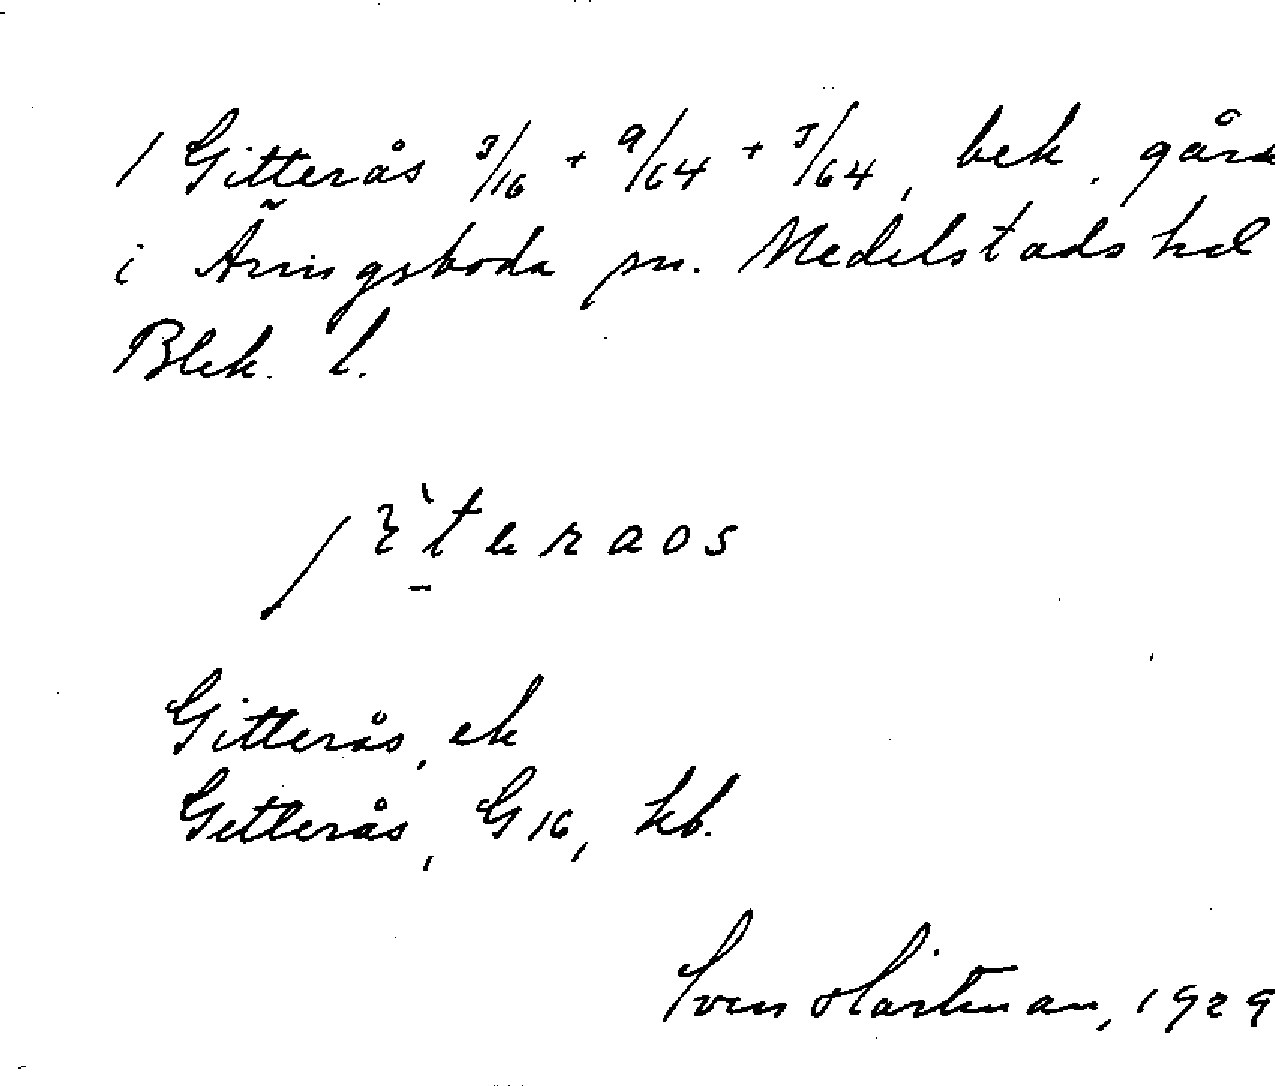 1 Gitterås 3/16 + 9/64 + 5/64, bek. gård
i Äringsboda sn. Medelstads hd
Blek. l.
Gitterås, ek
Getterås, G 16, kb.
Sven Hartman, 1929